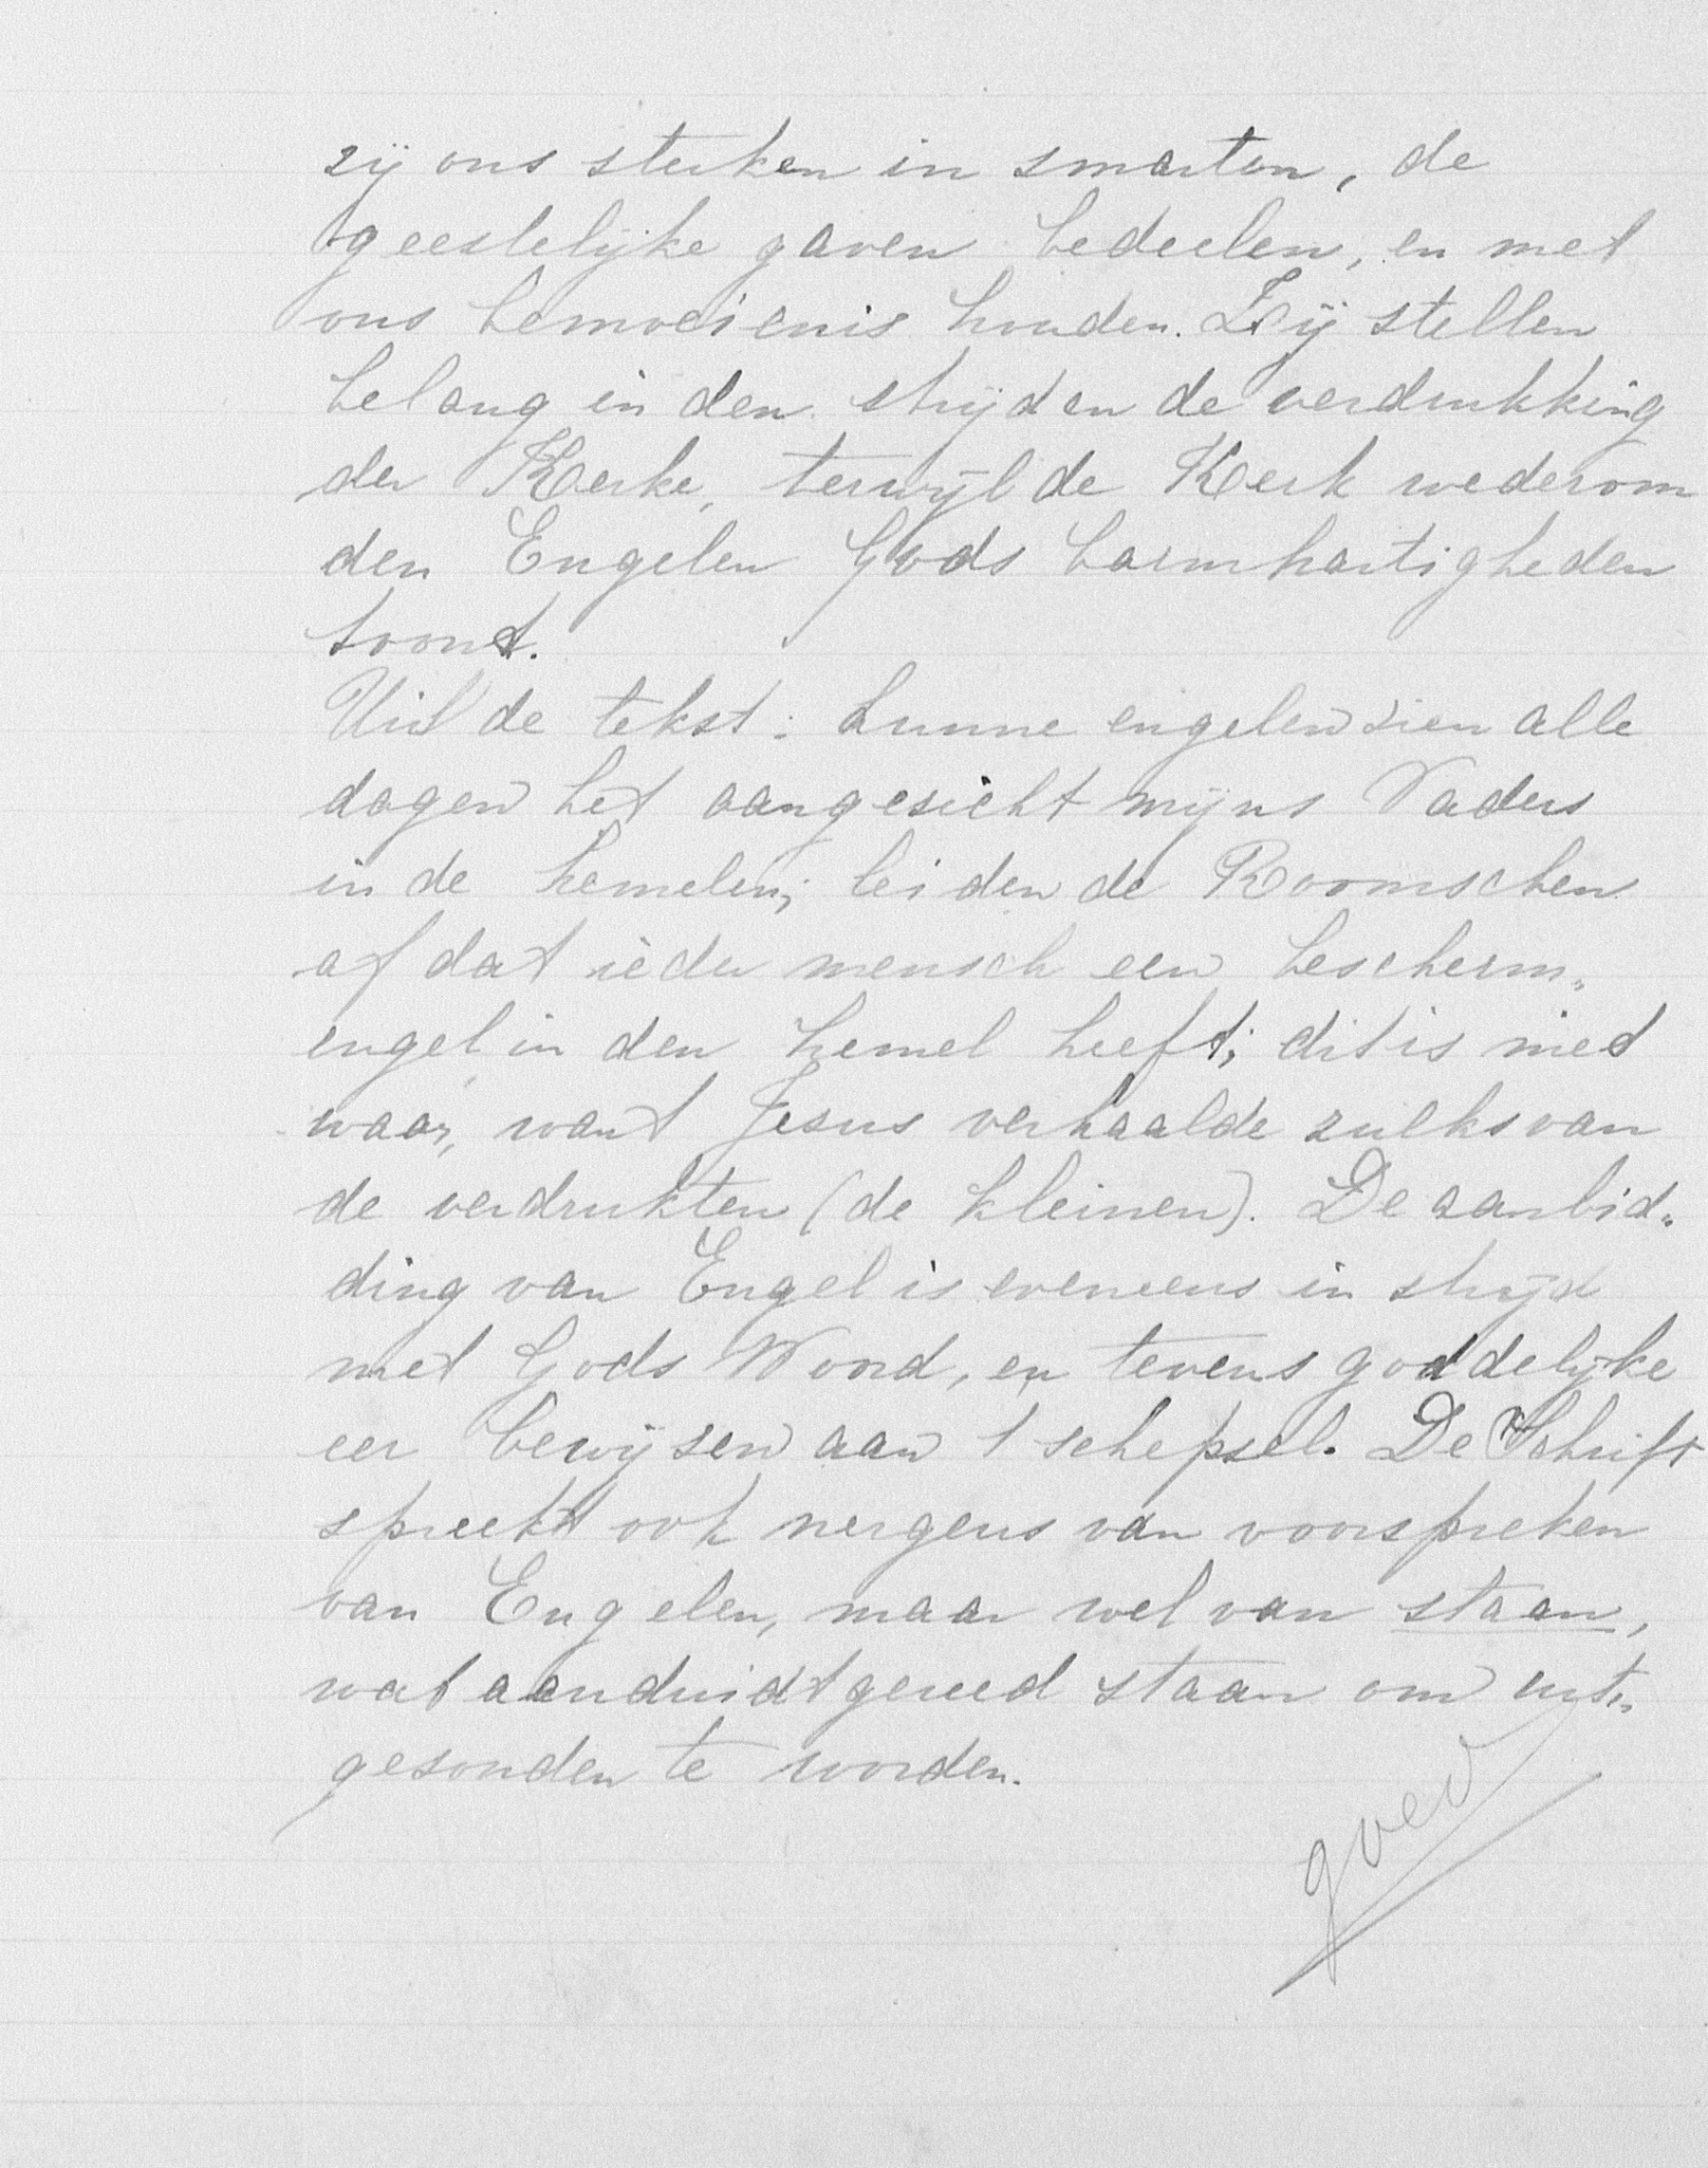 zij ons sterken in smarten, de
geestelijke gaven bedeelen, en met
ons bemoeienis houden. Zij stellen
belang in den strijd en de verdrukking
der Kerke, terwijl de Kerk wederom
den Engelen Gods barmhartigheden
toont.
Uit de tekst: hunne engelen zien alle
dagen het aangezicht mijns Vaders
in de hemelen; leiden de Roomschen
af dat ieder mensch een bescherm„
engel in den hemel heeft; dit is niet
waar, want Jezus verhaalde zulks van
de verdrukten (de kleinen). De aanbid„
ding van Engel is eveneens in strijd
met Gods Woord, en tevens goddelijke
eer bewijzen aan 1 schepsel. De Schrift
spreekt ook nergens van voorspreken
van Engelen, maar wel van staan,
wat aanduidt gereed staan om uit„
gezonden te worden.
goed